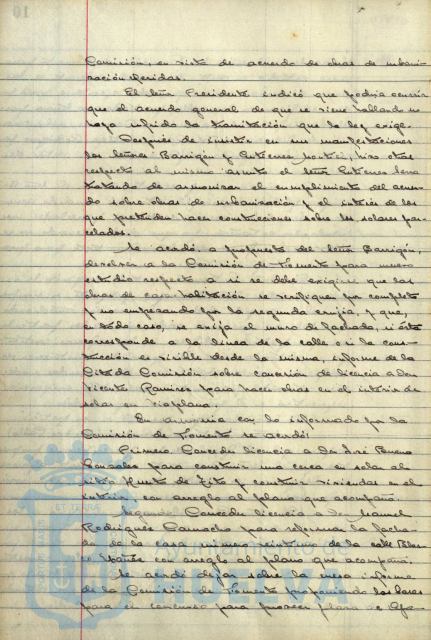 Comisión, en vista de acuerdo de obras de urbani-
zación referidas.
El señor Presidente indicó que podría ocurrir
que el acuerdo general de que se viene hablando no
haya sufrido la tramitación que la ley exige.
Después de insistir en sus manifestaciones
los señores Barrigón y Gutiérrez hizo otras
respecto al mismo asunto el señor Gutiérrez
tratando de armonizar el cumplimiento del acuer-
do sobre obras de urbanización y el interés de los
que pretenden hacer construcciones sobre los solares par-
celados.
Se acordó a propuesta del señor Barrigón,
devolver a la Comisión de Fomento para nuevo
estudio respecto a si se debe exigir que las
obras de casa habitación se verifiquen por completo
y no empezando por la segunda crujía, y que,
en todo caso, se exija el muro de fachada, si ésta
corresponde a la línea de la calle o si la cons-
trucción es visible desde la misma, informe de la
citada Comisión sobre concesión de licencia a Don
Vicente Ramírez para hacer obras en el interior de
solar en Viaplana.
En armonía con lo informado por la
Comisión de Fomento se acordó:
Primero Conceder licencia a Don José Bueno
González para construir una cerca en solar al
sitio Huerto de y construir viviendas en el
interior, con arreglo al plano que acompaña.
Segundo Conceder licencia a Don Manuel
Rodríguez Camacho para reformar la facha-
da de la casa número veintiuno de la calle
con arreglo al plano que acompaña.
Se acordó dejar sobre la mesa informe
de la Comisión de Fomento proponiendo las bases
para el concurso para proveer plaza de
Ayuntamiento de